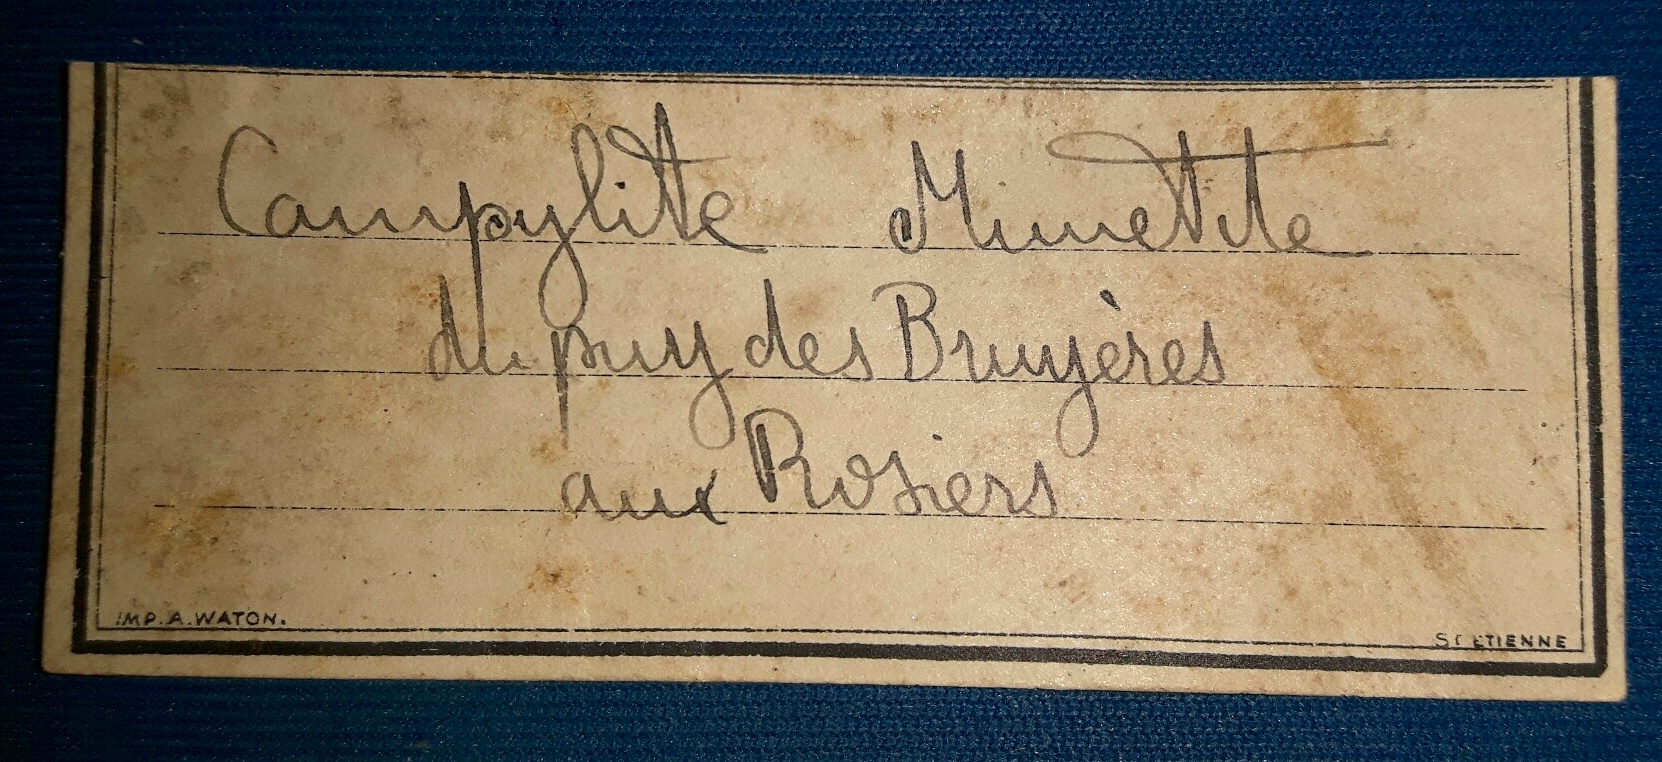 Campylite Mimetite
du puy des Bruyères
aux Rosiers
IMP. A. WATON.
ST ETIENNE